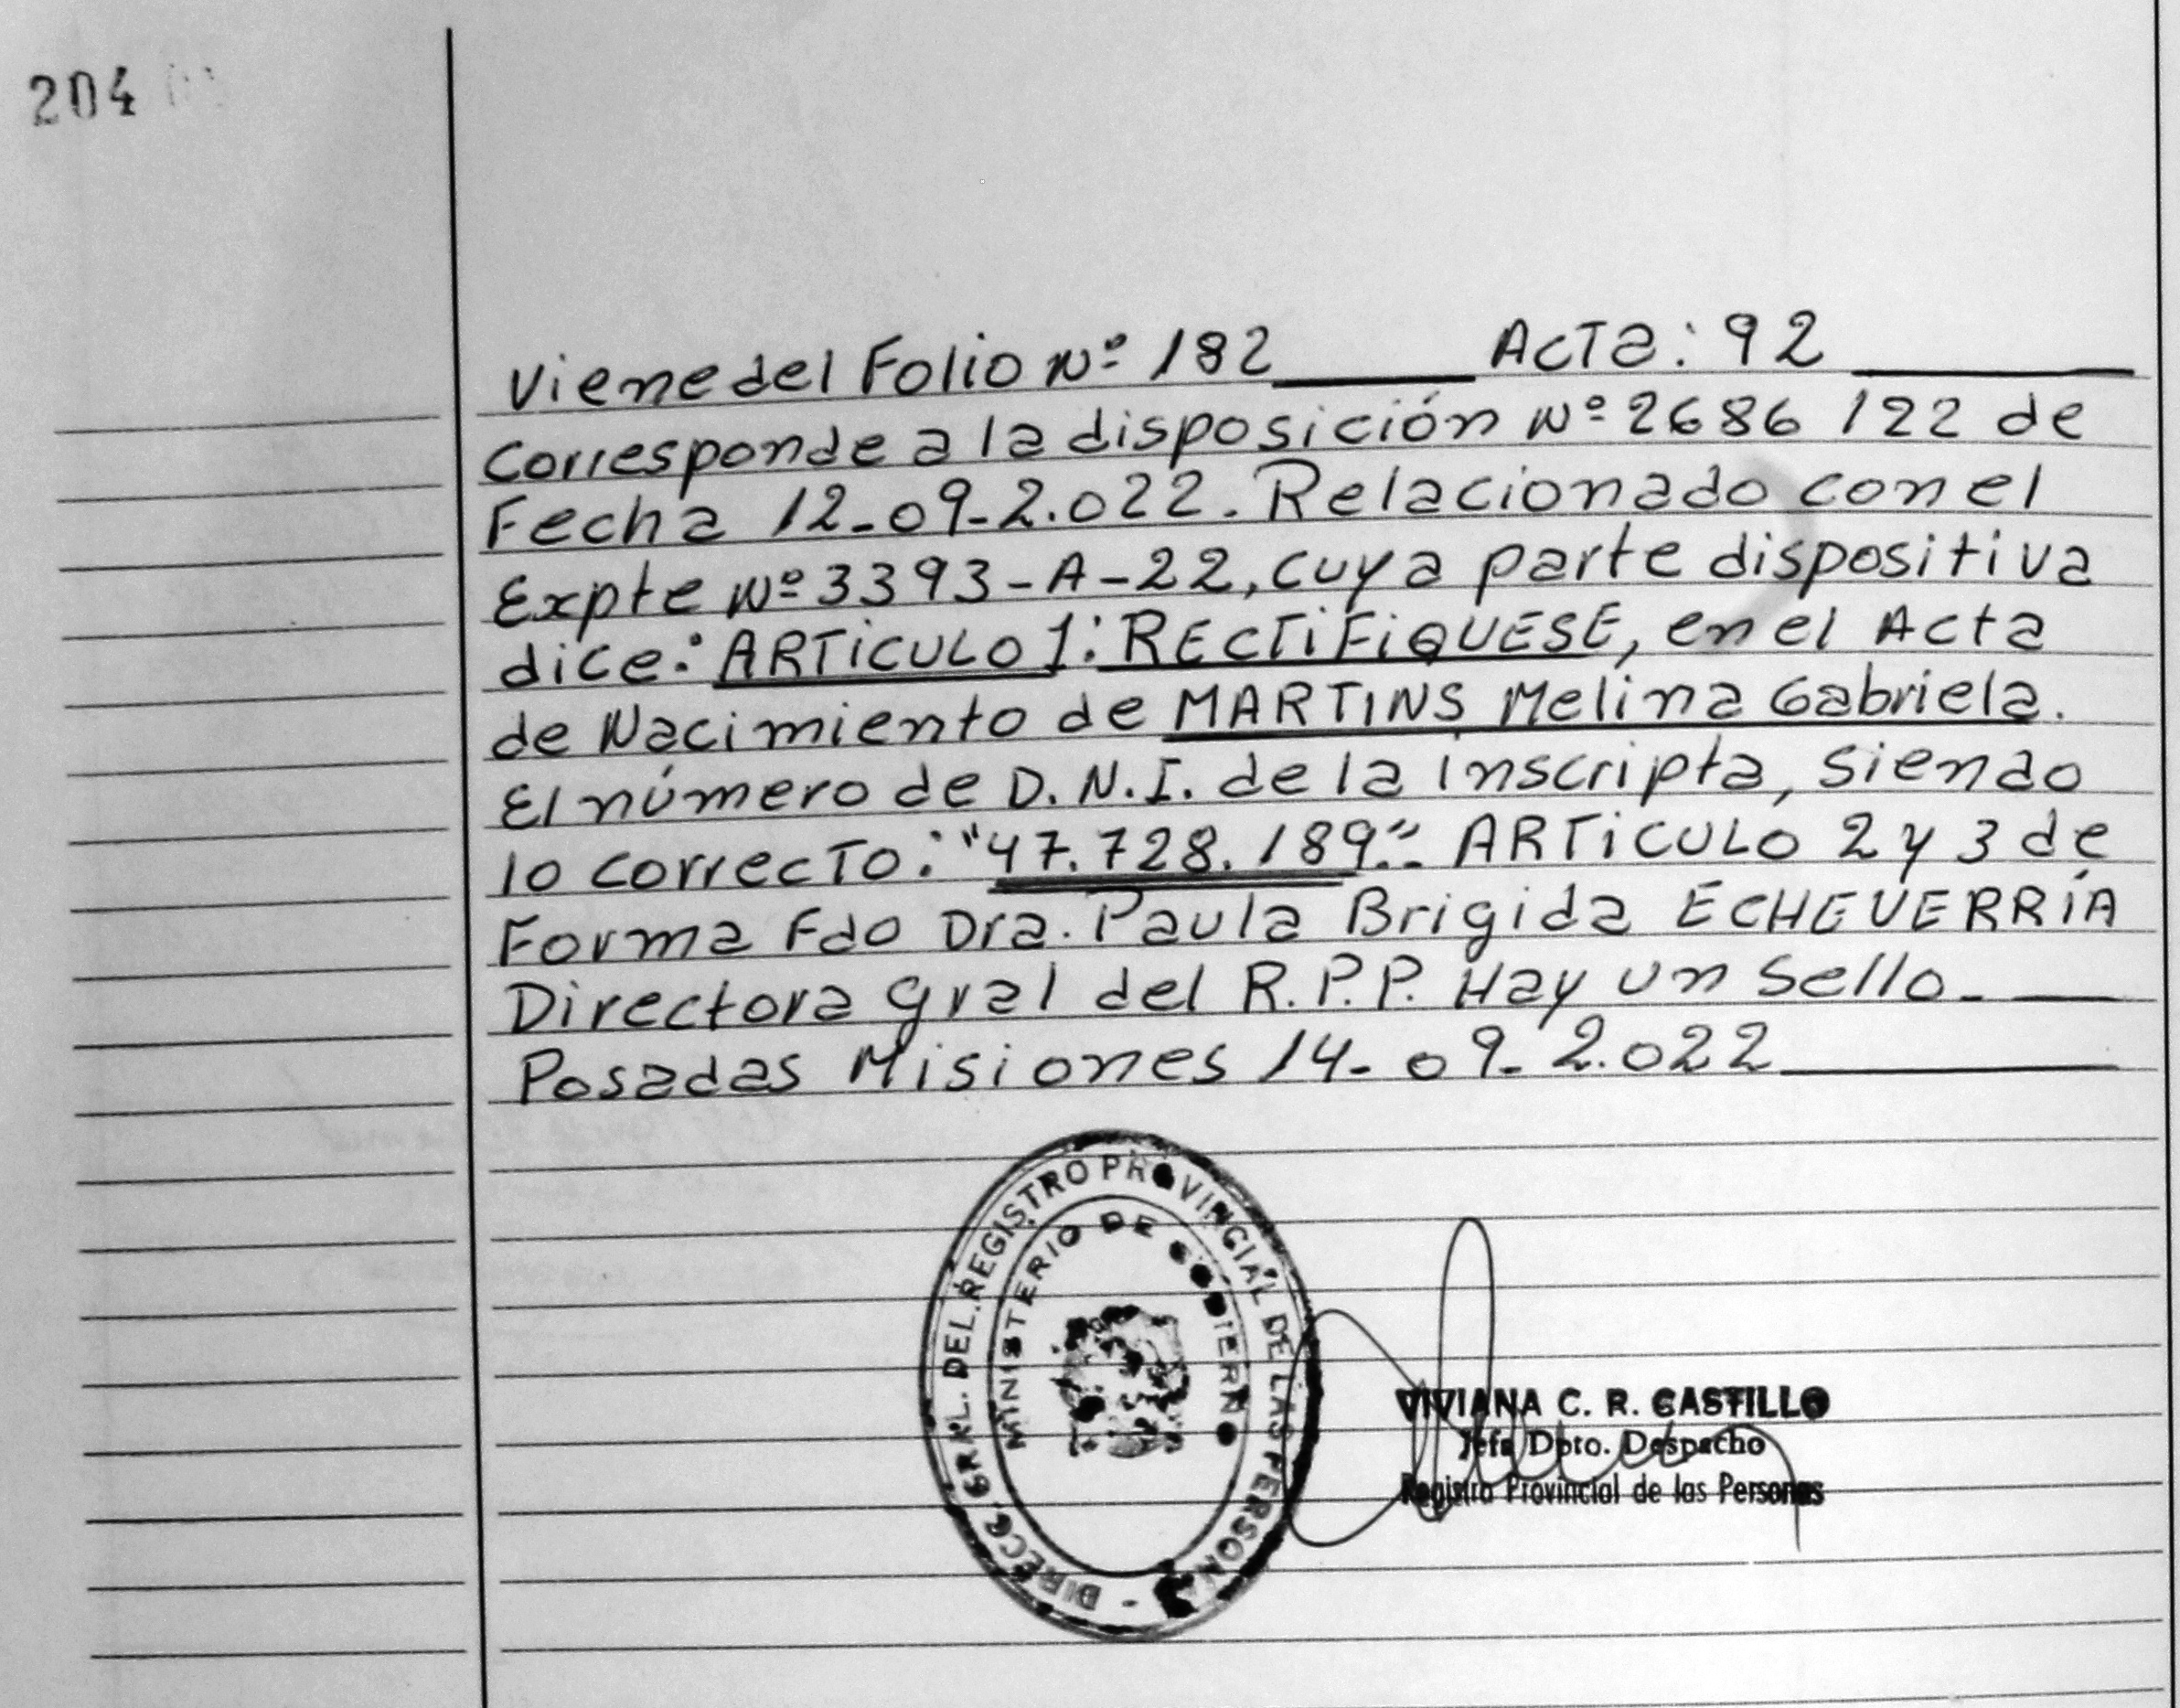 204
Viene del Folio Nº 182 ACTA: 92
Corresponde a la disposición Nº 2686 /22 de
Fecha 12-09-2.022. Relacionado con el
Expte Nº 3393-A-22, cuya parte dispositiva
dice: ARTiCULO 1: RECTiFiQUESE, en el Acta
de Nacimiento de MARTINS Melina Gabriela.
El número de D.N.I. de la inscripta, siendo
lo correcto: "47.728.189." ARTiCULO 2 y 3 de
Forma Fdo Dra. Paula Brigida ECHEVERRÍA
Directora gral del R.P.P. Hay un sello.
Posadas Misiones 14-09-2.022
DIRECC. GRAL. DEL REGISTRO PROVINCIAL DE LAS PERSONAS -
MINISTERIO DE GOBIERNO
VIVIANA C. R. CASTILLO
Jefa Dpto. Despacho
Registro Provincial de las Personas